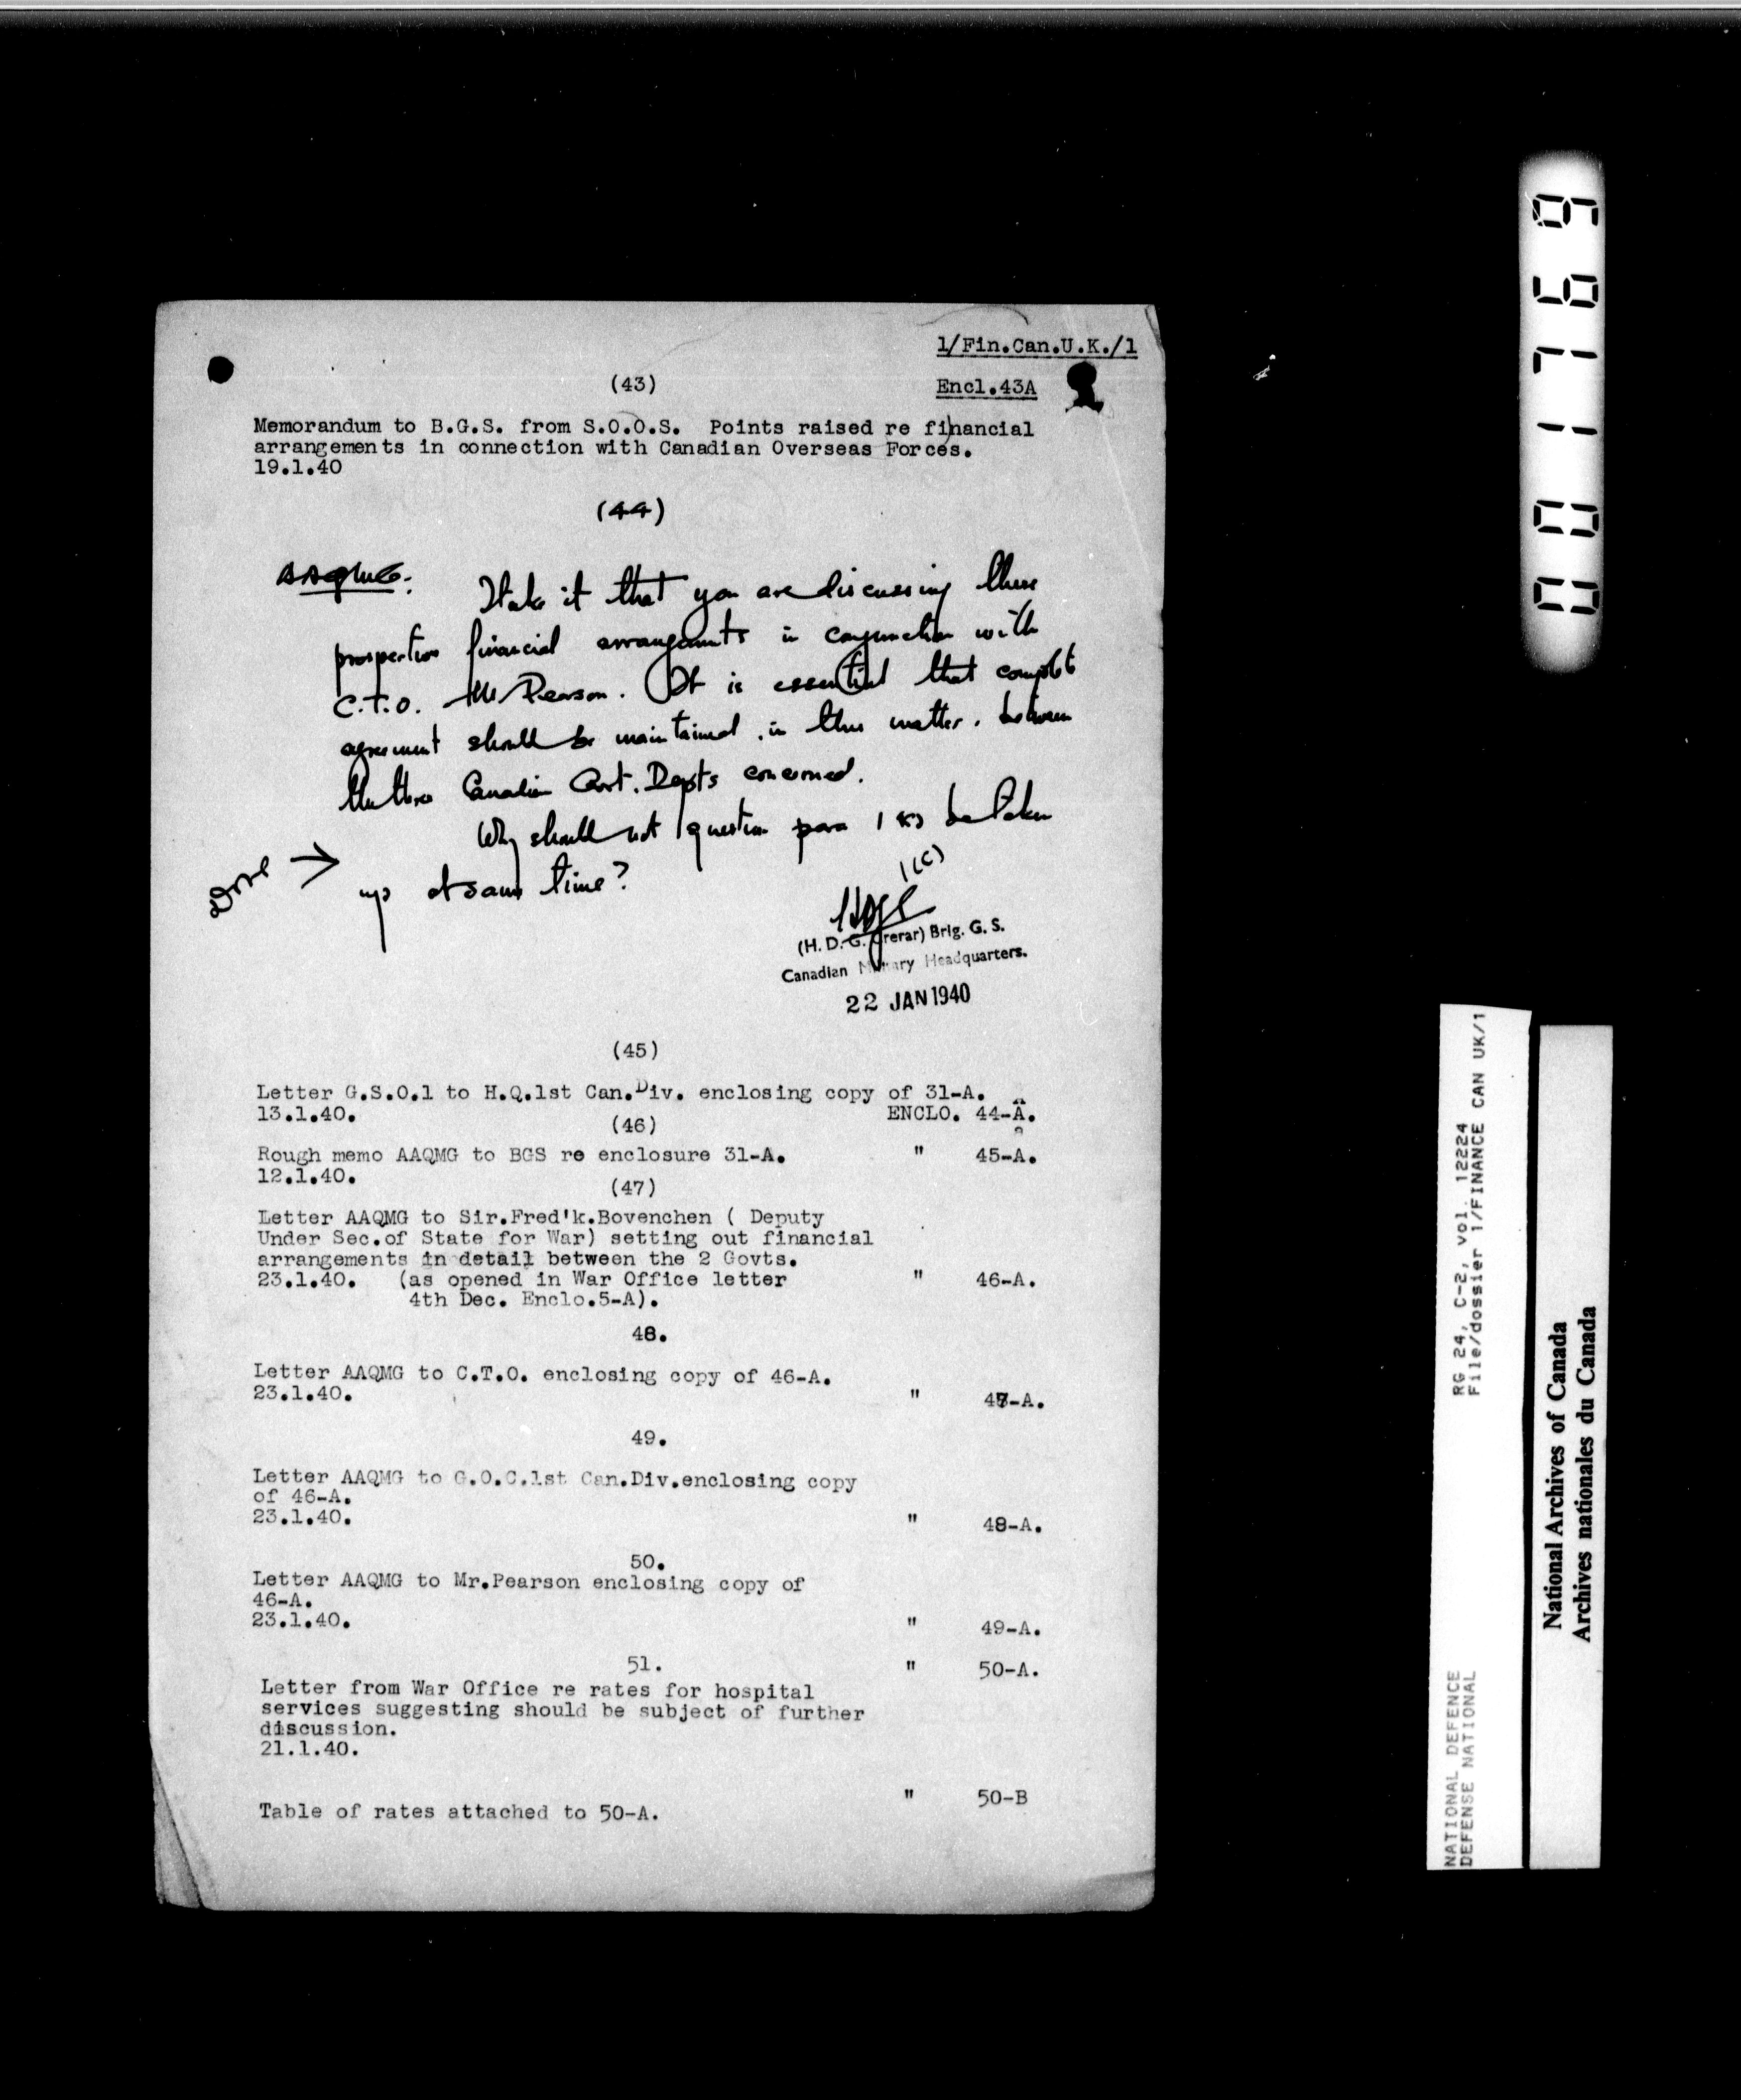 1/Fin.Can.U.K./1
(43)
Encl.43A
Memorandum to B.G.S. from S.O.O.S. Points raised re financial
arrangements in connection with Canadian Overseas Forces.
19.1.40
(44)
AAQMG.
I take it that you are discussing these
prospective financial arrangements in conjunction with
C.T.O. Mr Pearson. It is essential that complete
agreement should be maintained, in this matter, between
the three Canadian Govt. Depts concerned.
Why should not question para 1 (c) be taken
up at same time?
1(c)
(H. D. G. Crerar) Brig. G. S.
Canadian Military Headquarters.
22 JAN 1940
(45)
Letter G.S.O.1 to H.Q.1st Can.Div. enclosing copy of 31-A.
13.1.40.
ENCLO. 44-A.
(46)
Rough memo AAQMG to BGS re enclosure 31-A. " 45-A.
12.1.40.
(47)
Letter AAQMG to Sir.Fred'k.Bovenchen ( Deputy
Under Sec.of State for War) setting out financial
arrangements in detail between the 2 Govts.
23.1.40. (as opened in War Office letter " 46-A.
4th Dec. Enclo.5-A).
48.
Letter AAQMG to C.T.O. enclosing copy of 46-A.
23.1.40. " 47-A.
49.
Letter AAQMG to G.O.C.1st Can.Div.enclosing copy
of 46-A.
23.1.40. " 48-A.
50.
Letter AAQMG to Mr.Pearson enclosing copy of
46-A.
23.1.40. " 49-A.
51. " 50-A.
Letter from War Office re rates for hospital
services suggesting should be subject of further
discussion.
21.1.40.
" 50-B
Table of rates attached to 50-A.
001769
RG 24, C-2, vol. 12224
File/dossier 1/FINANCE CAN UK/1
NATIONAL DEFENCE
DEFENSE NATIONAL
National Archives of Canada
Archives nationales du Canada